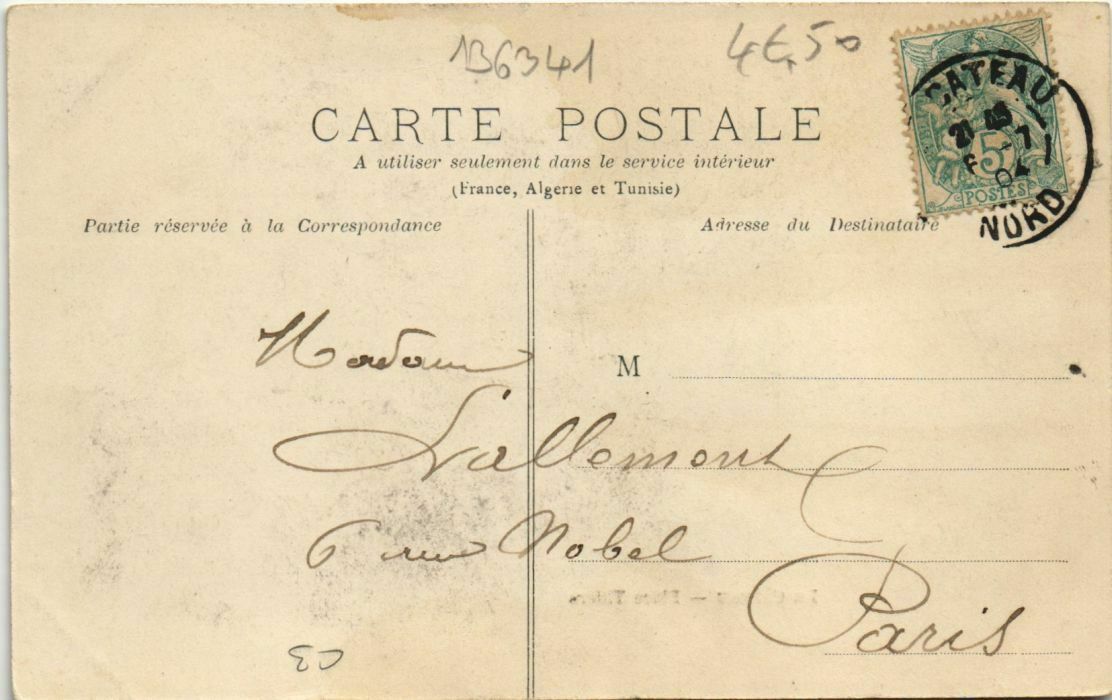 136341
4€,50
CARTE POSTALE
A utiliser seulement dans le service intérieur
(France, Algerie et Tunisie)
Partie réservée à la Correspondance
Adresse du Destinataire
CATEAU
5
POSTES
NORD
M
Madame
Lallemont
6 rue Nobel
Paris